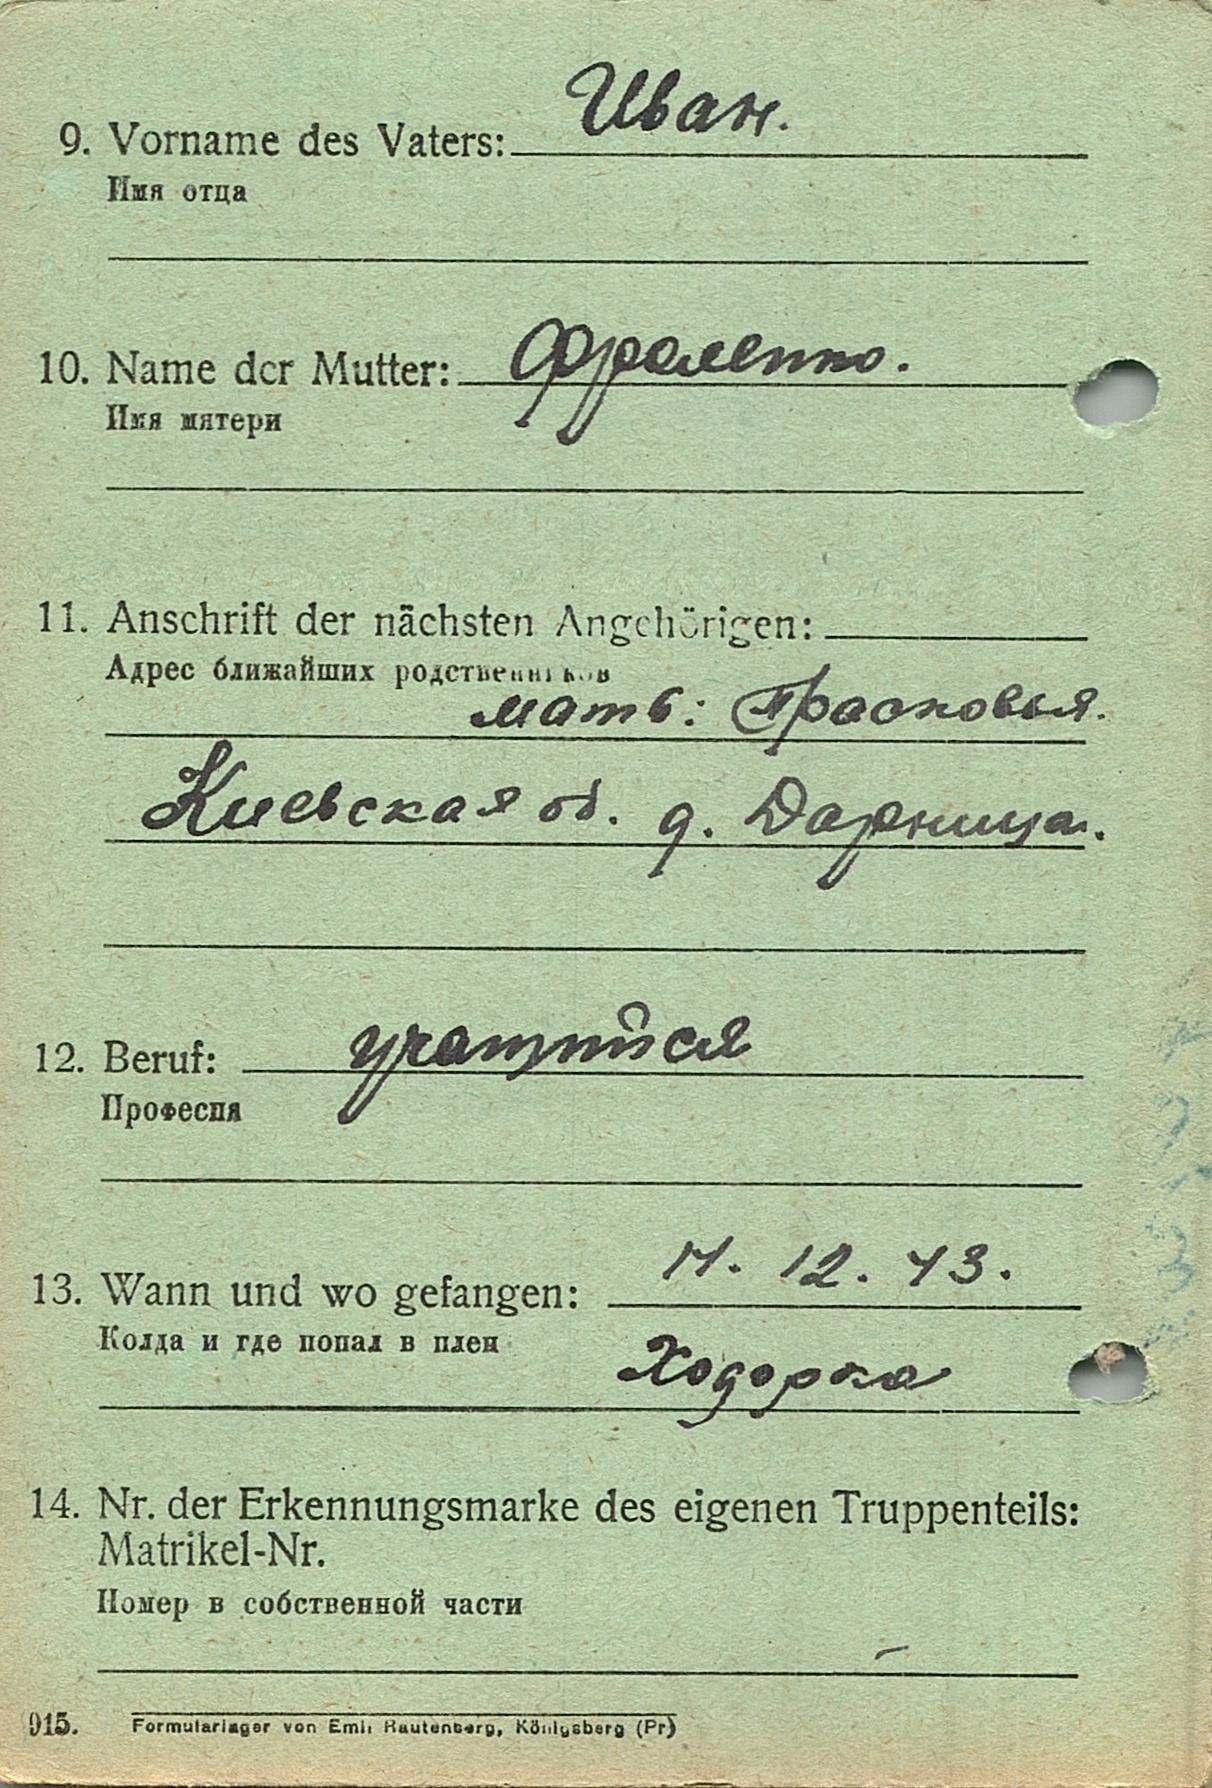 9. Vorname des Vaters: Иван.
Имя отца
10. Name der Mutter: Фроленко.
Имя мятери
11. Anschrift der nächsten Angehörigen:
Адрес ближайших родственников
мать: Прасковья.
Киевская об. д. Дарница.
12. Beruf: учащийся
Професия
13. Wann und wo gefangen: 12. 43.
Колда и где попал в плен
Ходорка
14. Nr. der Erkennungsmarke des eigenen Truppenteils:
Matrikel-Nr.
Номер в собственной части
–
915. Formularlager von Emil Rautenberg, Königsberg (Pr)